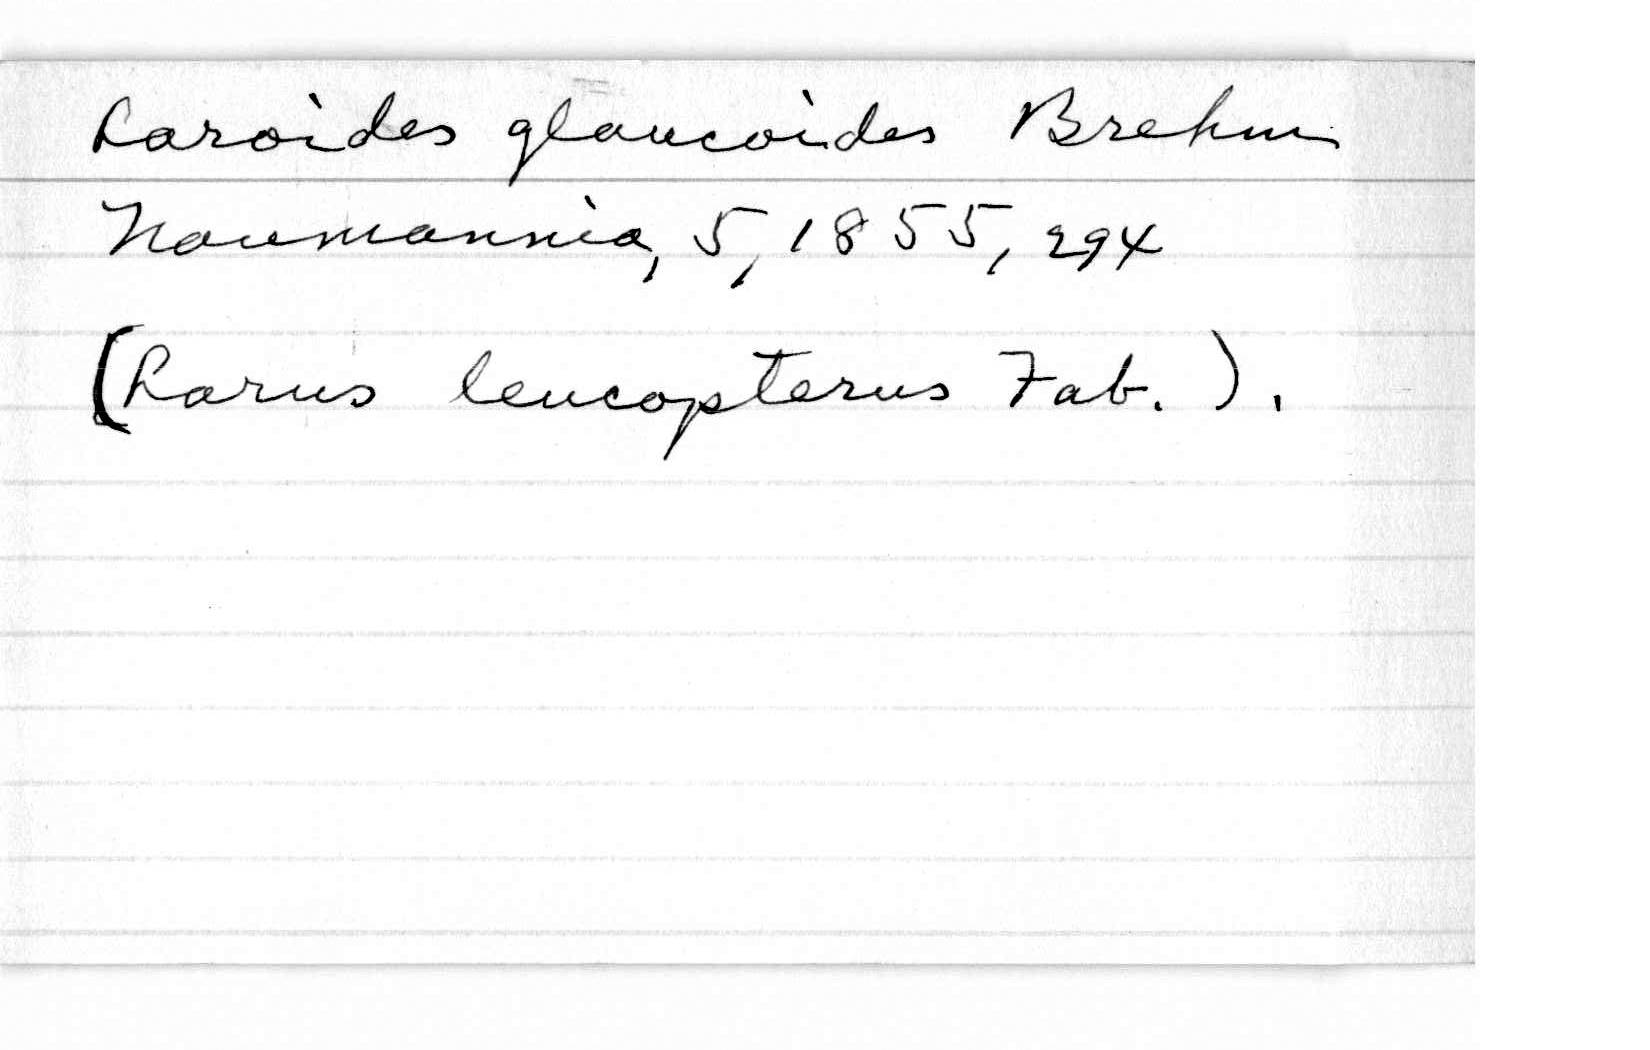 Laroides glaucoides Brehm
Naumannia, 5, 1855, 294
(Larus leucopterus Fab.).